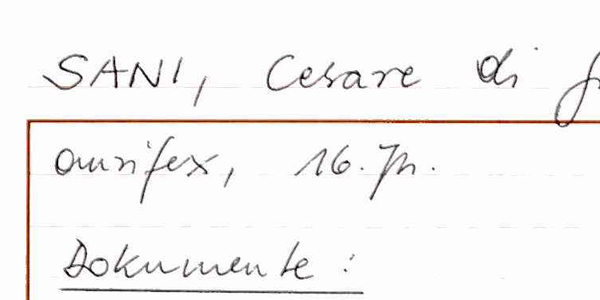 SANI, Cesare di
aurifex, 16. Jh.
Dokumente: